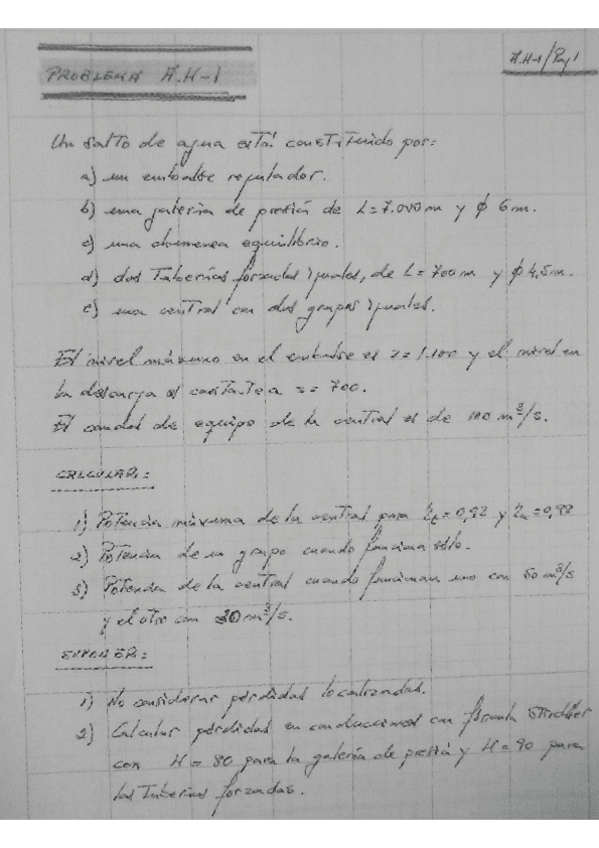 A.H-1/Pag 1
PROBLEMA A.H-1
Un salto de agua está constituido por:
a) un embalse regulador.
b) una galería de presión de L=7.000 m y ϕ 6 m.
c) una chimenea equilibrio.
d) dos Tuberías forzadas iguales, de L= 700 m y ϕ 4,5 m.
e) una central con dos grupos iguales.
El nivel máximo en el embalse es z=1.100 y el nivel en
la descarga es constante a z= 700.
El caudal de equipo de la central es de 100 m³/s.
CALCULAR:
1) Potencia máxima de la central para ηt=0,92 y ηa=0,98
2) Potencia de un grupo cuando funciona sólo.
3) Potencia de la central cuando funcionan uno con 50 m³/s
y el otro con 30 m³/s.
SUPONER:
1) No considerar pérdidas localizadas.
2) Calcular pérdidas en conducciones con fórmula Strickler
con K = 80 para la galería de presión y K = 90 para
las Tuberías forzadas.